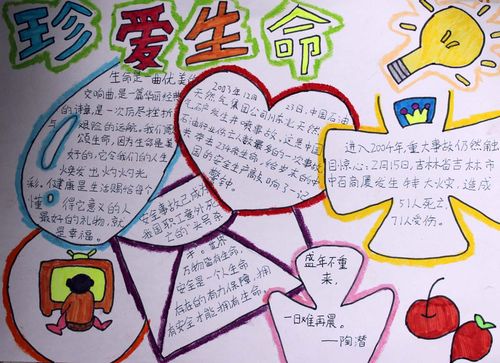 珍爱生命
生命是一曲优美的
交响曲,是一篇华丽经典
的诗章,是一次历尽挫折
与艰险的远航,我们
颂生命,因为生命是美
好的,它令我们的人生
焕发出灼灼光
彩。健康是生活赐给每个
懂得它意义的人
最好的礼物,就
是幸福。
2003年12月23日,中国石油
天然气集团公司川东北天然
气矿发生井喷事故,这是中国
石油井伤亡人数最多的一次事故
夺走243条生命,给岁末的中
国的安全生产敲响了一记
警钟。
进入2004年,重大事故仍然触
目惊心,2月15日,吉林省吉林市
中百商厦发生特大火灾,造成
51人死亡,
71人受伤。
安全事故已成为
我国职工意外死
亡的“头号杀
手”。世界
万物皆有生命,
安全是一个人生命
存在的有力保障,拥
有安全才能拥有生命
盛年不重
来,
一日难再晨。
——陶潜